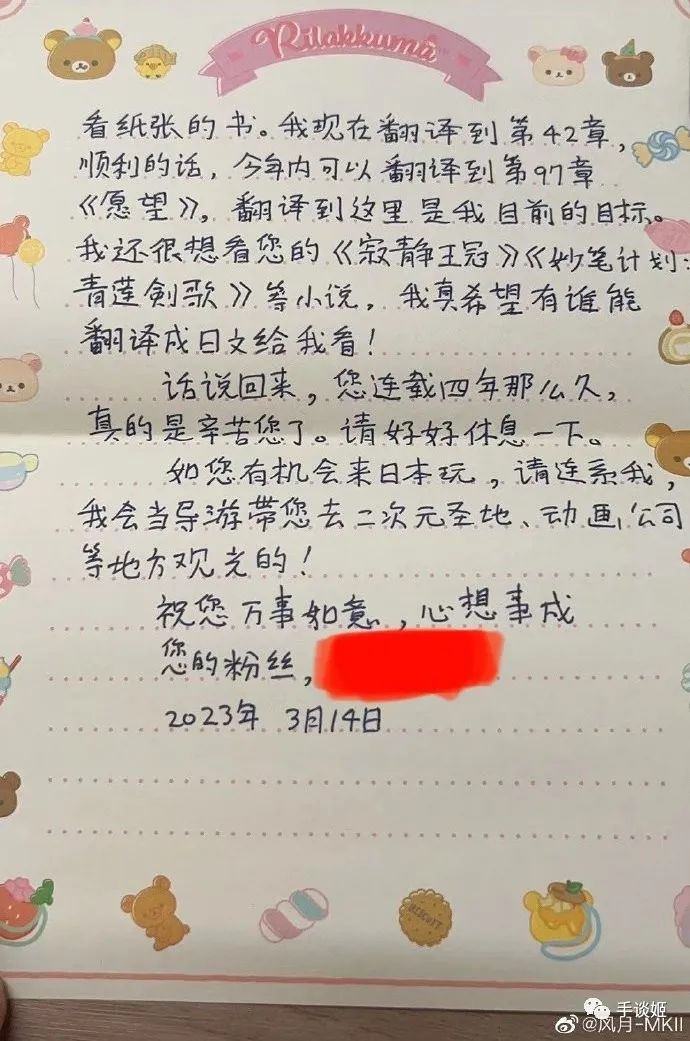 Rilakkuma
看纸张的书。我现在翻译到第42章，
顺利的话，今年内可以翻译到第97章
《愿望》。翻译到这里是我目前的目标。
我还很想看您的《寂静王冠》《妙笔计划：
青莲剣歌》等小说，我真希望有谁能
翻译成日文给我看！
话说回来，您连载四年那么久，
真的是辛苦您了。请好好休息一下。
如您有机会来日本玩，请连系我，
我会当导游带您去二次元圣地、动画公司
等地方观光的！
祝您万事如意，心想事成
您的粉丝，
2023年 3月14日
BISCUIT
手谈姬
@风月-MKII